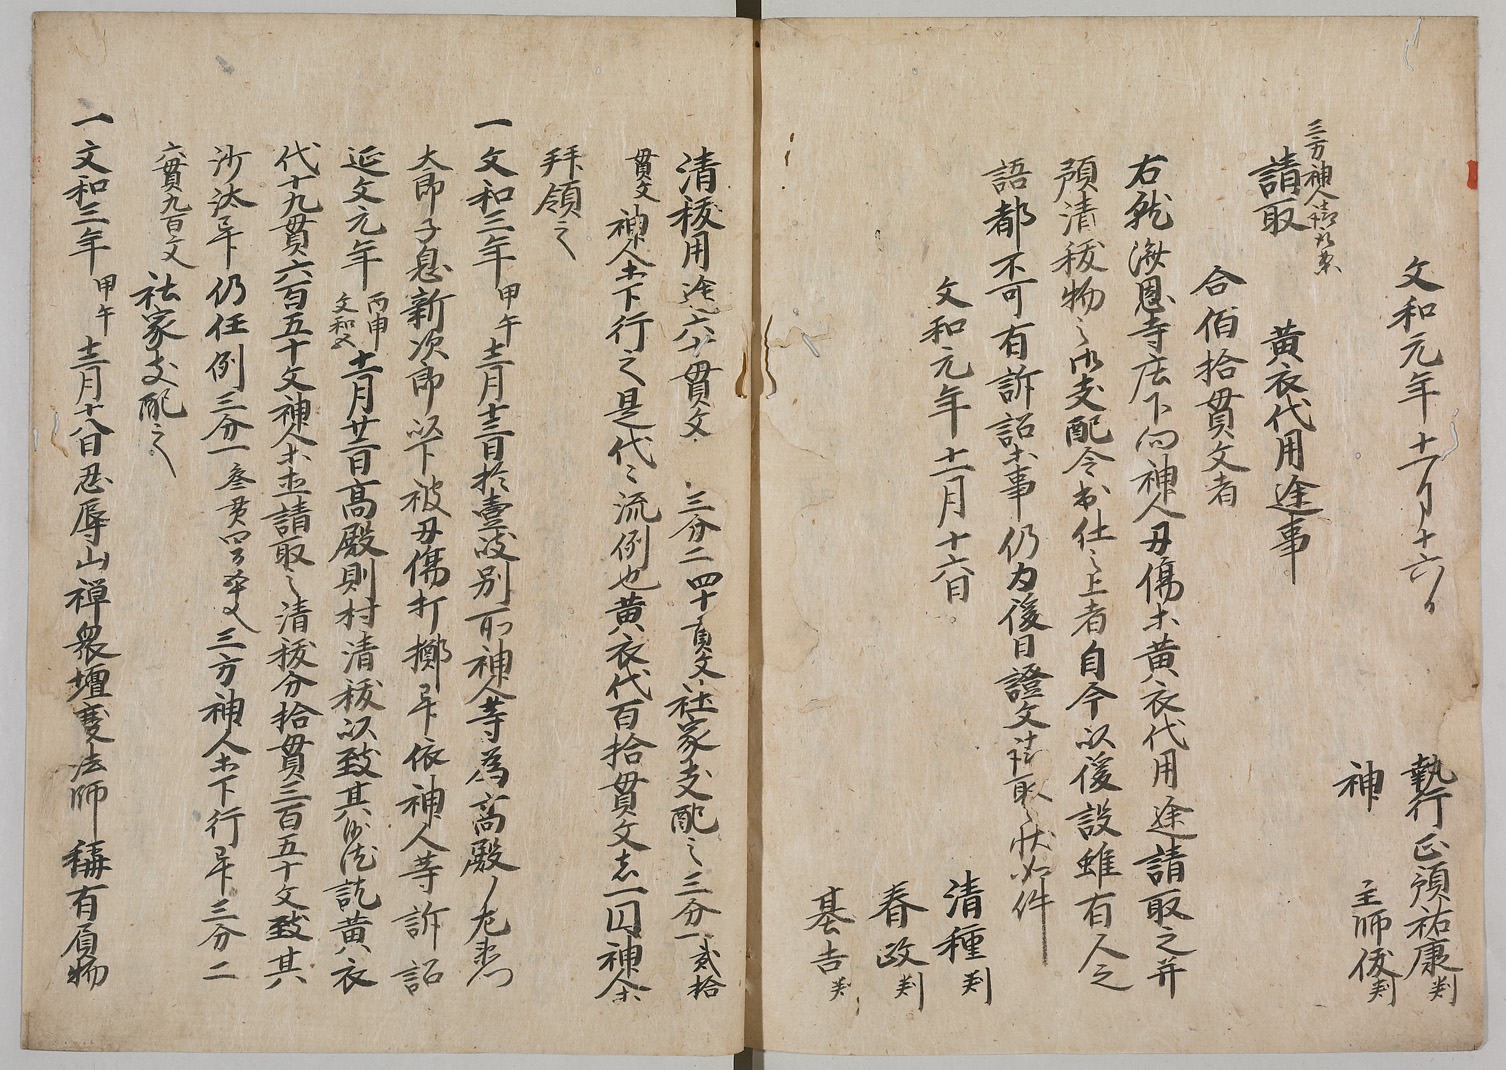 文和元年十一月十六日
執行正預祐康判
神主師俊判
三方神人請取案
請取　黄衣代用途事
合佰拾貫文者
右就海恩寺庄下向神人刃傷等黄衣代用途請取之并
預清秡物之御支配令出仕之上者自今以後設雖有人之
語都不可有訴詔等事仍為後日證文請取之状如件
文和元年十一月十六日
清種判
春政判
基吉判
清秡用途六十貫文　三分二四十貫文社家支配之三分一貳拾
貫文神人等下行之是代々流例也黄衣代百拾貫文者一円神人等
拜領之
一文和三年甲午十二月十三日於壹岐別所神人等為高殿ノ左衛門
太郎子息新次郎以下被刃傷打擲畢依神人等訴詔
延文元年丙申文和五十二月廿二日高殿則村清秡以致其沙汰訖黄衣
代十九貫六百五十文神人等並請取之清秡分拾貫三百五十文致其
沙汰畢仍任例三分一叄貫四百五十文三方神人等下行畢三分二
六貫九百文社家支配之
一文和三年甲午十二月十八日忍辱山禅衆壇慶法師稱有負物